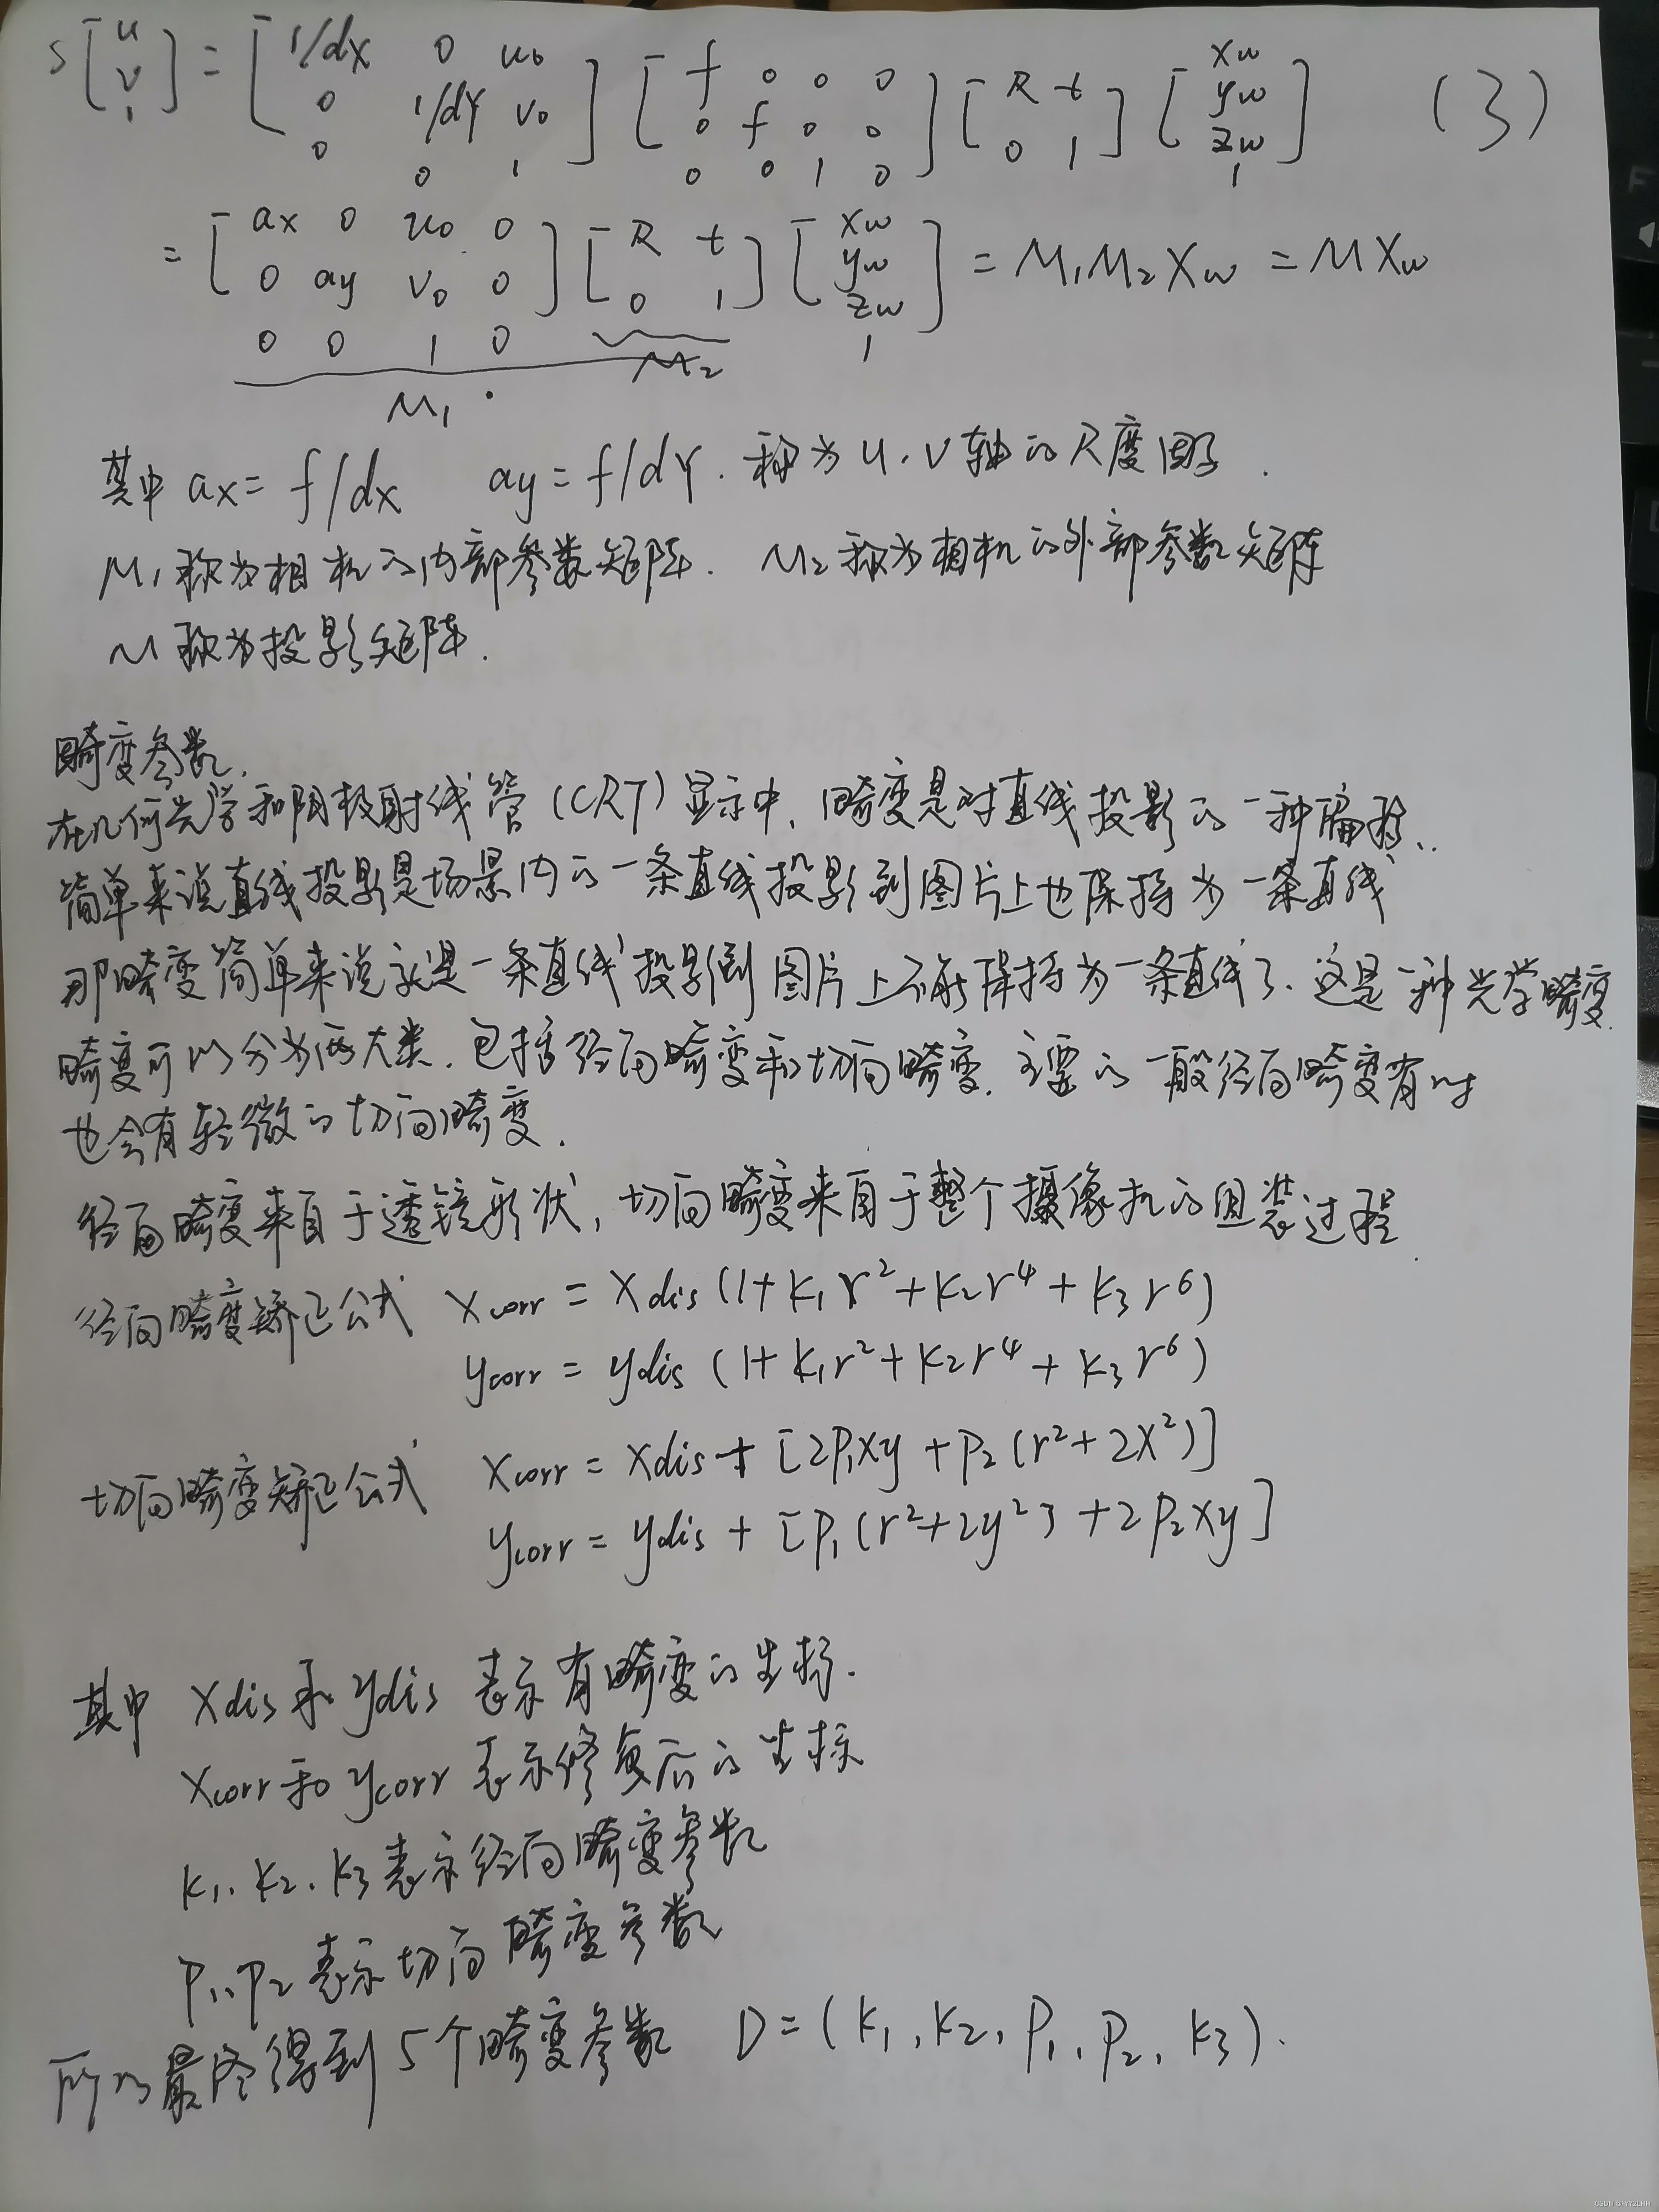 s[u v 1] = [1/dx 0 u0; 0 1/dY v0; 0 0 1] [f 0 0 0; 0 f 0 0; 0 0 1 0] [R t; 0 1] [xw yw zw 1] (3)
= [ax 0 u0 0; 0 ay v0 0; 0 0 1 0] [R t; 0 1] [xw yw zw 1] = M1M2Xw = MXw
M1 M2
其中 ax = f/dx ay = f/dY. 称为 u.v 轴的尺度因子.
M1 称为相机的内部参数矩阵. M2 称为相机的外部参数矩阵
M 称为投影矩阵.
畸变参数.
在几何光学和阴极射线管(CRT)显示中, 畸变是对直线投影的一种偏移..
简单来说直线投影是场景内的一条直线投影到图片上也保持为一条直线
那畸变简单来说就是一条直线投影到图片上不能保持为一条直线了. 这是一种光学畸变.
畸变可以分为两大类. 包括径向畸变和切向畸变. 主要的一般径向畸变有时
也会有轻微的切向畸变.
径向畸变来自于透镜形状, 切向畸变来自于整个摄像机的组装过程.
径向畸变矫正公式 xcorr = xdis(1+k1r²+k2r⁴+k3r⁶)
ycorr = ydis(1+k1r²+k2r⁴+k3r⁶)
切向畸变矫正公式 xcorr = xdis + [2p1xy + p2(r²+2x²)]
ycorr = ydis + [p1(r²+2y²) + 2p2xy]
其中 xdis和 ydis 表示有畸变的坐标.
xcorr和 ycorr 表示修复后的坐标
k1. k2. k3表示径向畸变参数
p1. p2 表示切向畸变参数
所以最终得到5个畸变参数 D=(k1,k2,p1,p2,k3).
CSDN @FYY2LHH